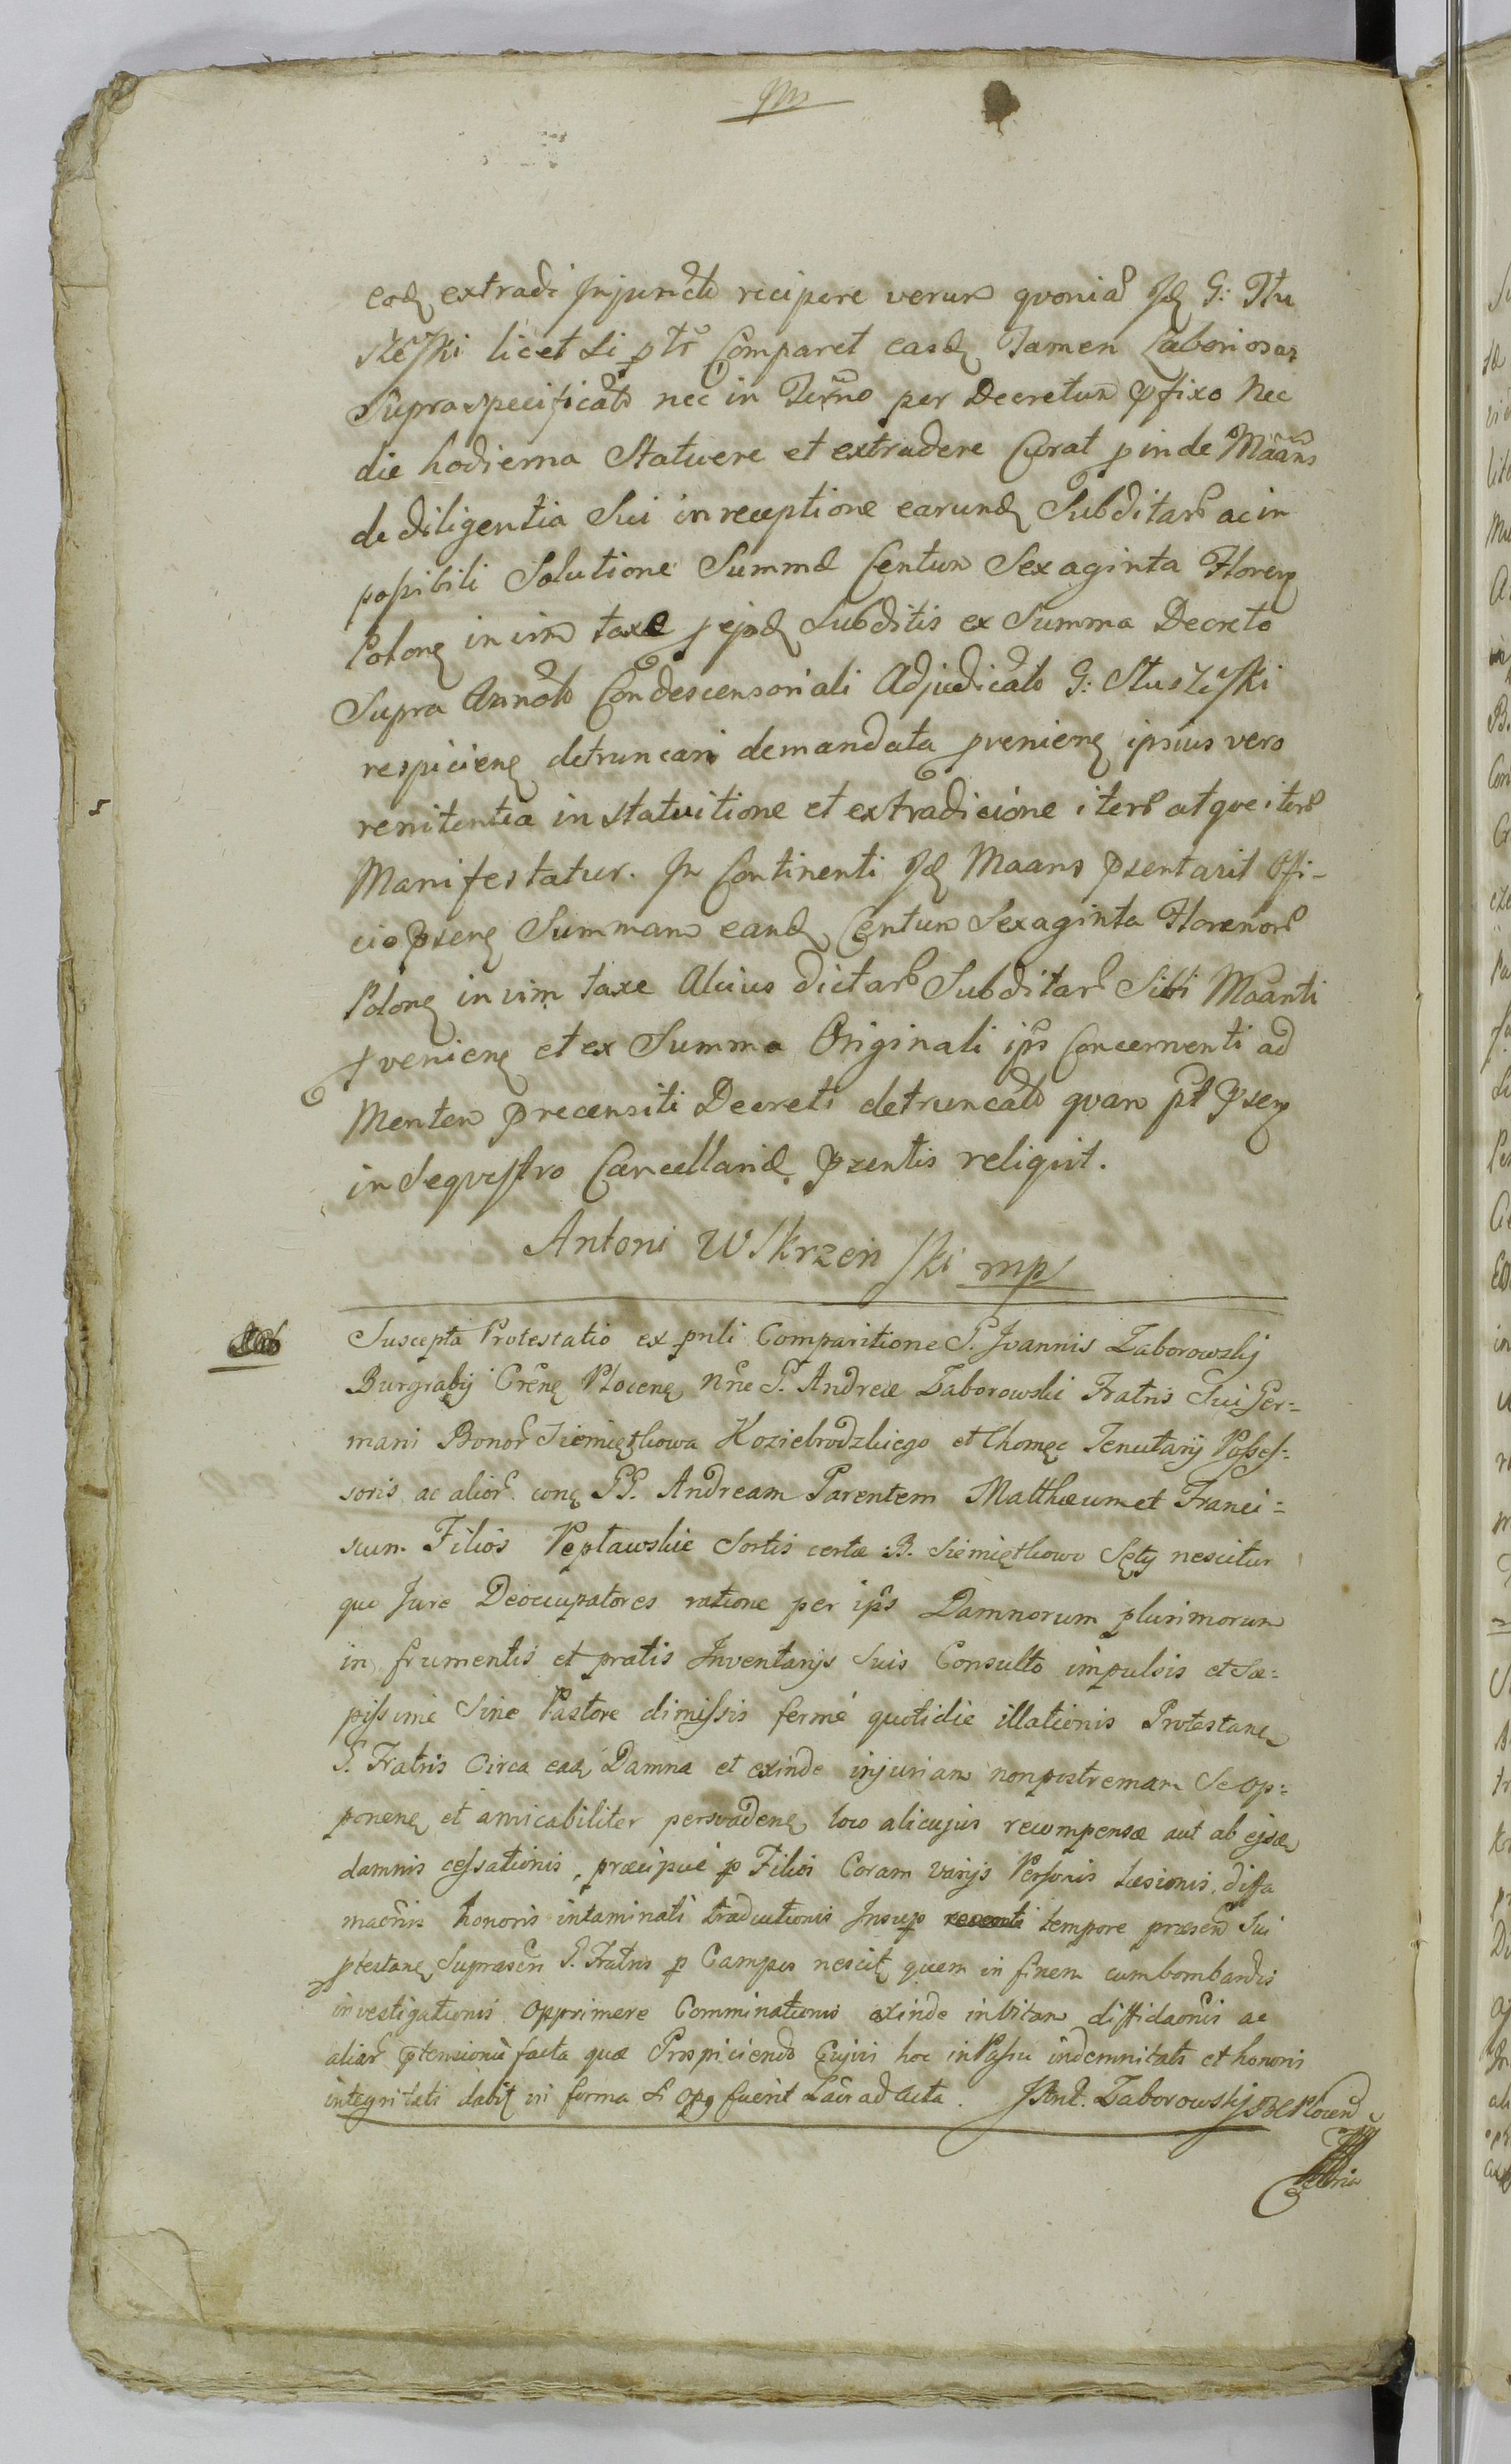 eod extradi Injuncto recipere verum qvoniã Id G: Stu
szeski licet Si ptr Comparet easd Tamen Laboriosas
Supraspecificato nec in Termno per Decretum pfixo Nec
die hodierna Statuere et extradere Curat pinde Maans
de diligentia Sui in receptione earund Subditar ac in
possibili Solutione Summæ Centum Sexaginta Floren
Polon in vim taxæ ejsd Subditis ex Summa Decreto
Supra Annoto Condescensoriali Adjudicato G: Stuszeski
respicien detruncari demandata pvenien ipsius vero
renitentia in statuitione et extradicione iter atqve iter
Manifestatur. In Continenti Id Maans psentavit Offi-
cio psen Summam eand Centum Sexaginta Florenor
Polon in vim taxe Alcius dictar Subditar Sibi Maanti
pvenien et ex Summa Originali ips Concernenti ad
Mentem precensiti Decreti detruncato qvam pt psen
in Seqvestro Cancellariæ psentis reliqvit.
Antoni Wskrzenski mp
Suscepta Protestatio ex pnli Comparitione G. Joannis Zaborowskj
Burgrabij Crēn Plocen nne G. Andreæ Zaborowski Fratris Sui Ger=
mani Bonor Siemiętkowa Koziebrodzkiego et Chomęc Tenutarij Posses=
soris ac alior con GG. Andream Parentem Matthæum et Franci=
scum Filios Peptawskie Sortis certæ B. Siemiętkowo Sęty nescitur
quo Jure Deoccupatores ratione per ips Damnorum plurimorum
in frumentis et pratis Inventarijs Suis Consulto impulsis et Sæ=
pissimè Sine Pastore dimissis fermè quotidie illationis Protestan
G. Fratris Circa ead Damna et exinde injuriam non postremam Se op=
ponen et amicabiliter persvaden loco alicujus recompensæ aut ab ejsd
damnis cessationis, præcipuè p Filios Coram varijs Personis Læsionis, diffa
maōnis honoris intaminati traductionis Insup recenti tempore præsen Sui
ptestan Suprascri G. Fratris p Campos nescit quem in finem cum bombardis
investigationis opprimere Comminationis exinde in Vitam diffidaōnis ac
aliar ptensionũ facta quæ Prospiciendo Cujvis hoc in Passu indemnitati et honoris
integritati dabit in forma Si op9 fuerit Latũ ad Acta. J Ant. Zaborowskj Plocen